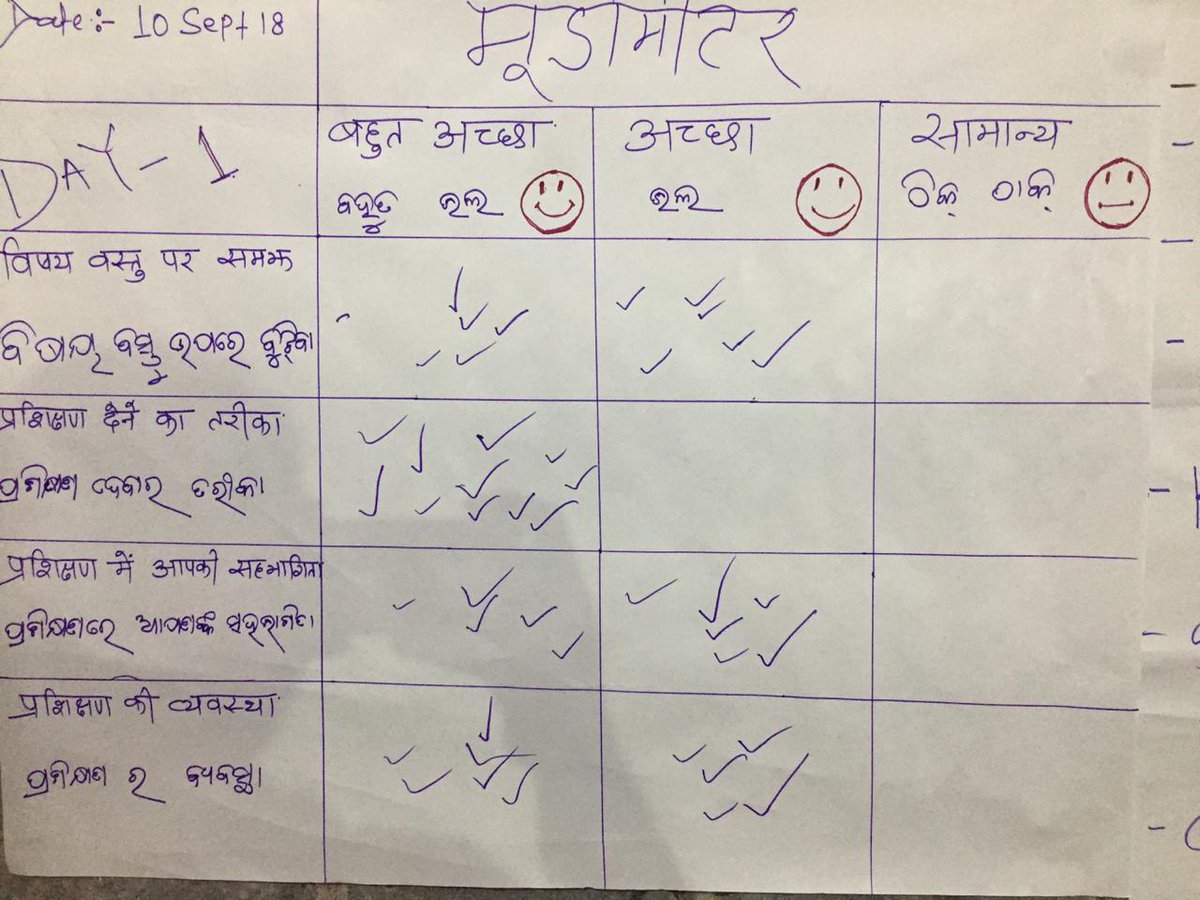 Date:- 10 Sept 18
मूडामीटर
DAY-1
बहुत अच्छा
ବହୁତ ଭଲ
अच्छा
ଭଲ
सामान्य
ଠିକ୍ ଠାକ୍
विषय वस्तु पर समझ
ବିଷୟ ବସ୍ତୁ ଉପରେ ବୁଝିବା
प्रशिक्षण देने का तरीका
ପ୍ରଶିକ୍ଷଣ ଦେବାର ତରୀକା
प्रशिक्षण में आपकी सहभागिता
ପ୍ରଶିକ୍ଷଣରେ ଆପଣଙ୍କ ସହଭାଗିତା
प्रशिक्षण की व्यवस्था
ପ୍ରଶିକ୍ଷଣ ର ବ୍ୟବସ୍ଥା